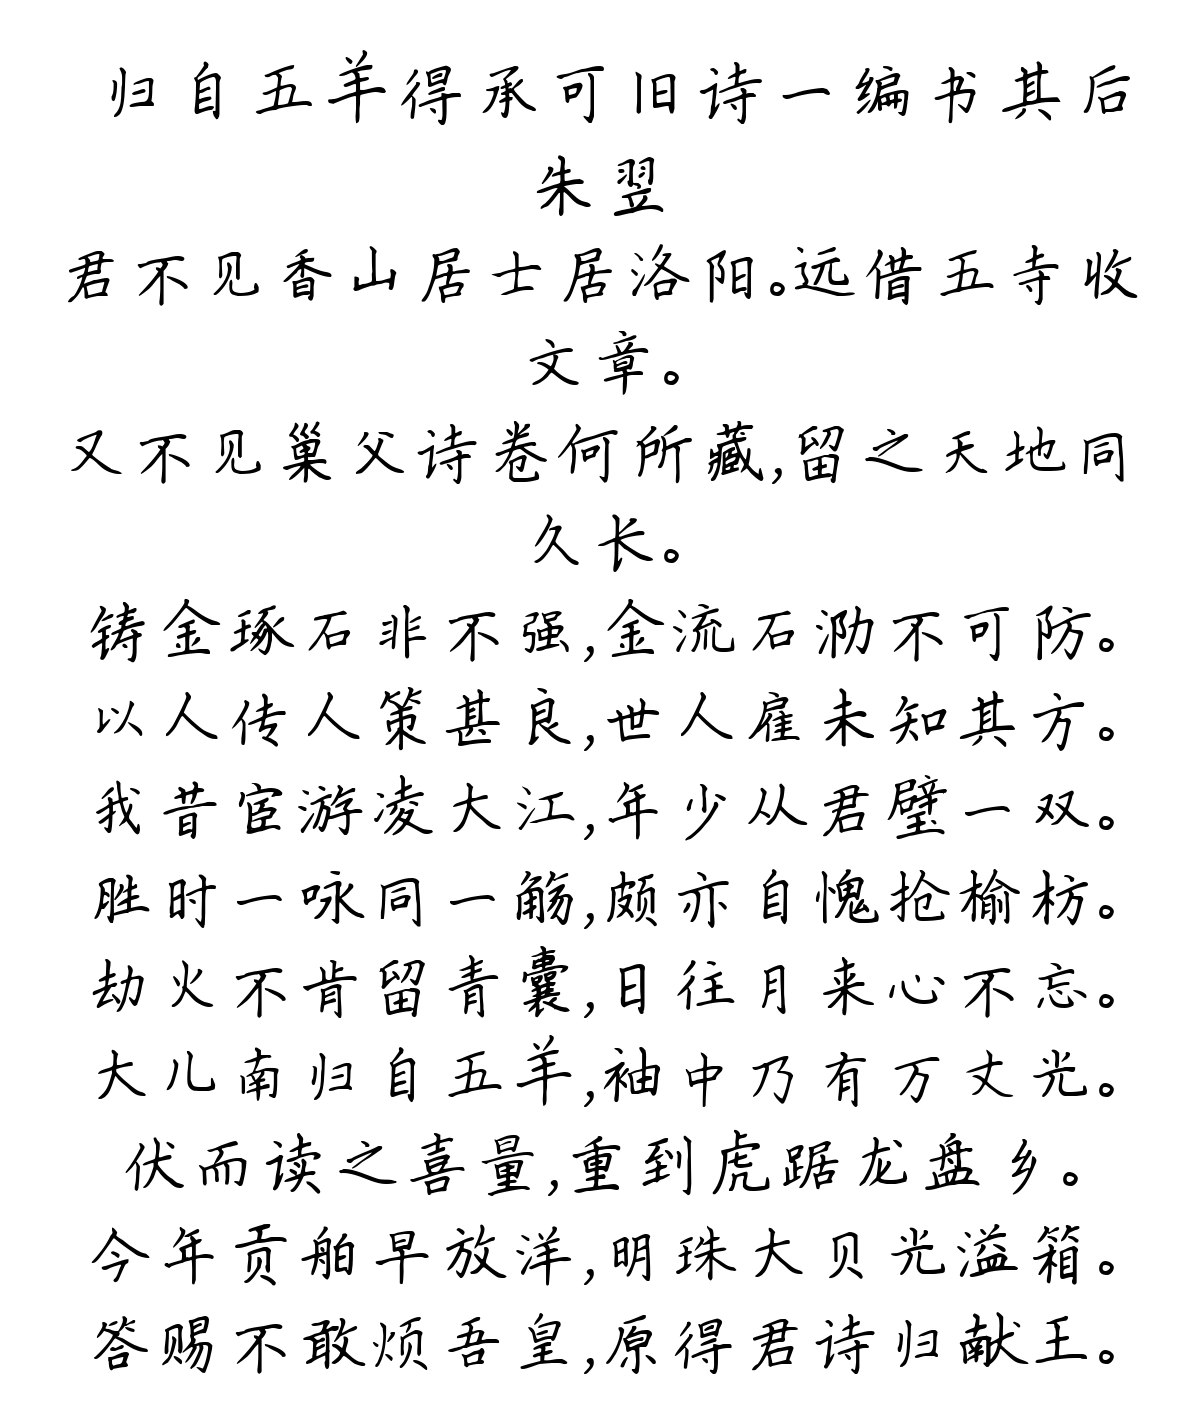 归自五羊得承可旧诗一编书其后
朱翌
君不见香山居士居洛阳。远借五寺收
文章。
又不见巢父诗卷何所藏,留之天地同
久长。
铸金琢石非不强,金流石泐不可防。
以人传人策甚良,世人雇未知其方。
我昔宦游凌大江,年少从君璧一双。
胜时一咏同一觞,颇亦自愧抢榆枋。
劫火不肯留青囊,日往月来心不忘。
大儿南归自五羊,袖中乃有万丈光。
伏而读之喜量,重到虎踞龙盘乡。
今年贡舶早放洋,明珠大贝光溢箱。
答赐不敢烦吾皇,原得君诗归献王。